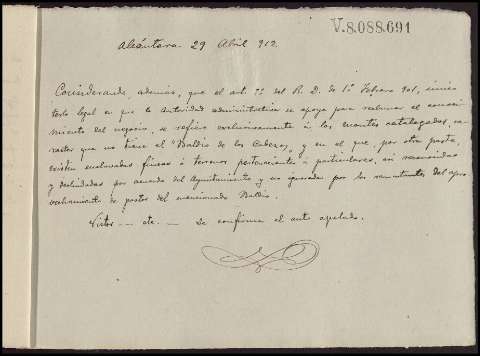 V.8.088.691
Alcántara 29 Abril 912
Considerando, además, que el art. 75 del R. D. de 1º Febrero 901, único
texto legal en que la autoridad administrativa se apoya para reclamar el conoci-
miento del negocio, se refiere exclusivamente á los montes catalogados, ca-
rácter que no tiene el Baldío de los Cabezos, y en el que, por otra parte,
existen enclavadas fincas ó terrenos pertenecientes á particulares, así reconocidas
y deslindadas por acuerdo del Ayuntamiento y no ignorada por los rematantes del apro
vechamiento de pastos del mencionado Baldío.
Vistos — etc. — Se confirma el auto apelado.